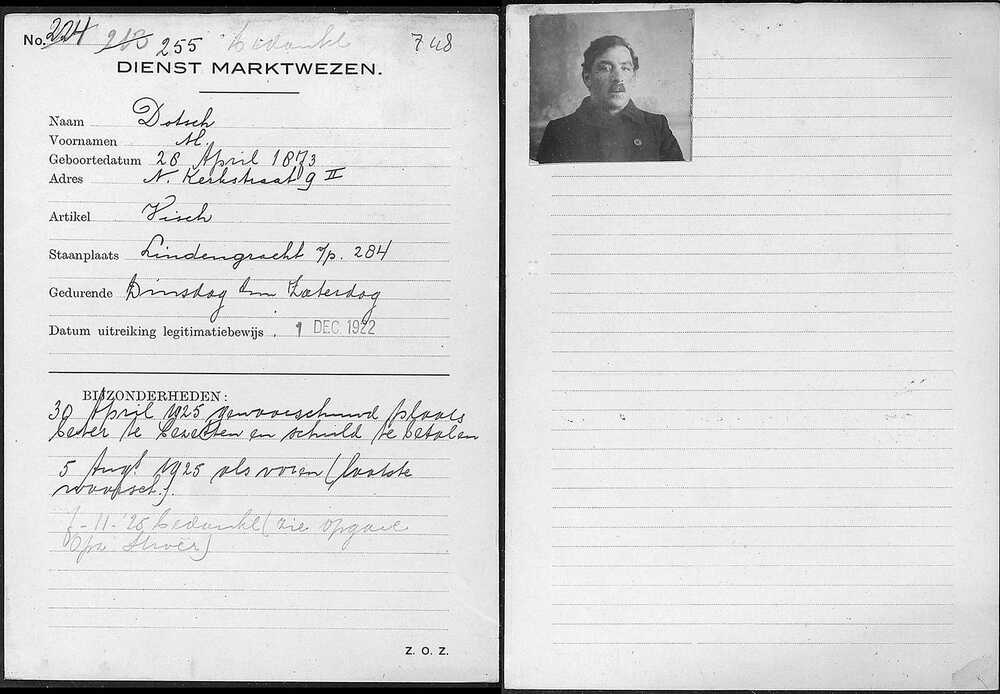 No. 224 263 255 bedankt 748
DIENST MARKTWEZEN.
Naam Dotsch
Voornamen M.
Geboortedatum 28 April 1873
Adres N. Kerkstraat 9 II
Artikel Visch
Staanplaats Lindengracht t/p. 284
Gedurende Dinsdag t/m Zaterdag
Datum uitreiking legitimatiebewijs . 1 DEC. 1922
BIJZONDERHEDEN:
30 April 1925 gewaarschuwd plaats
beter te bezetten en schuld te betalen
5 Augt 1925 als voren (laatste
waarsch.).
-11-'25 bedankt (zie opgave
Opz.
Z. O. Z.